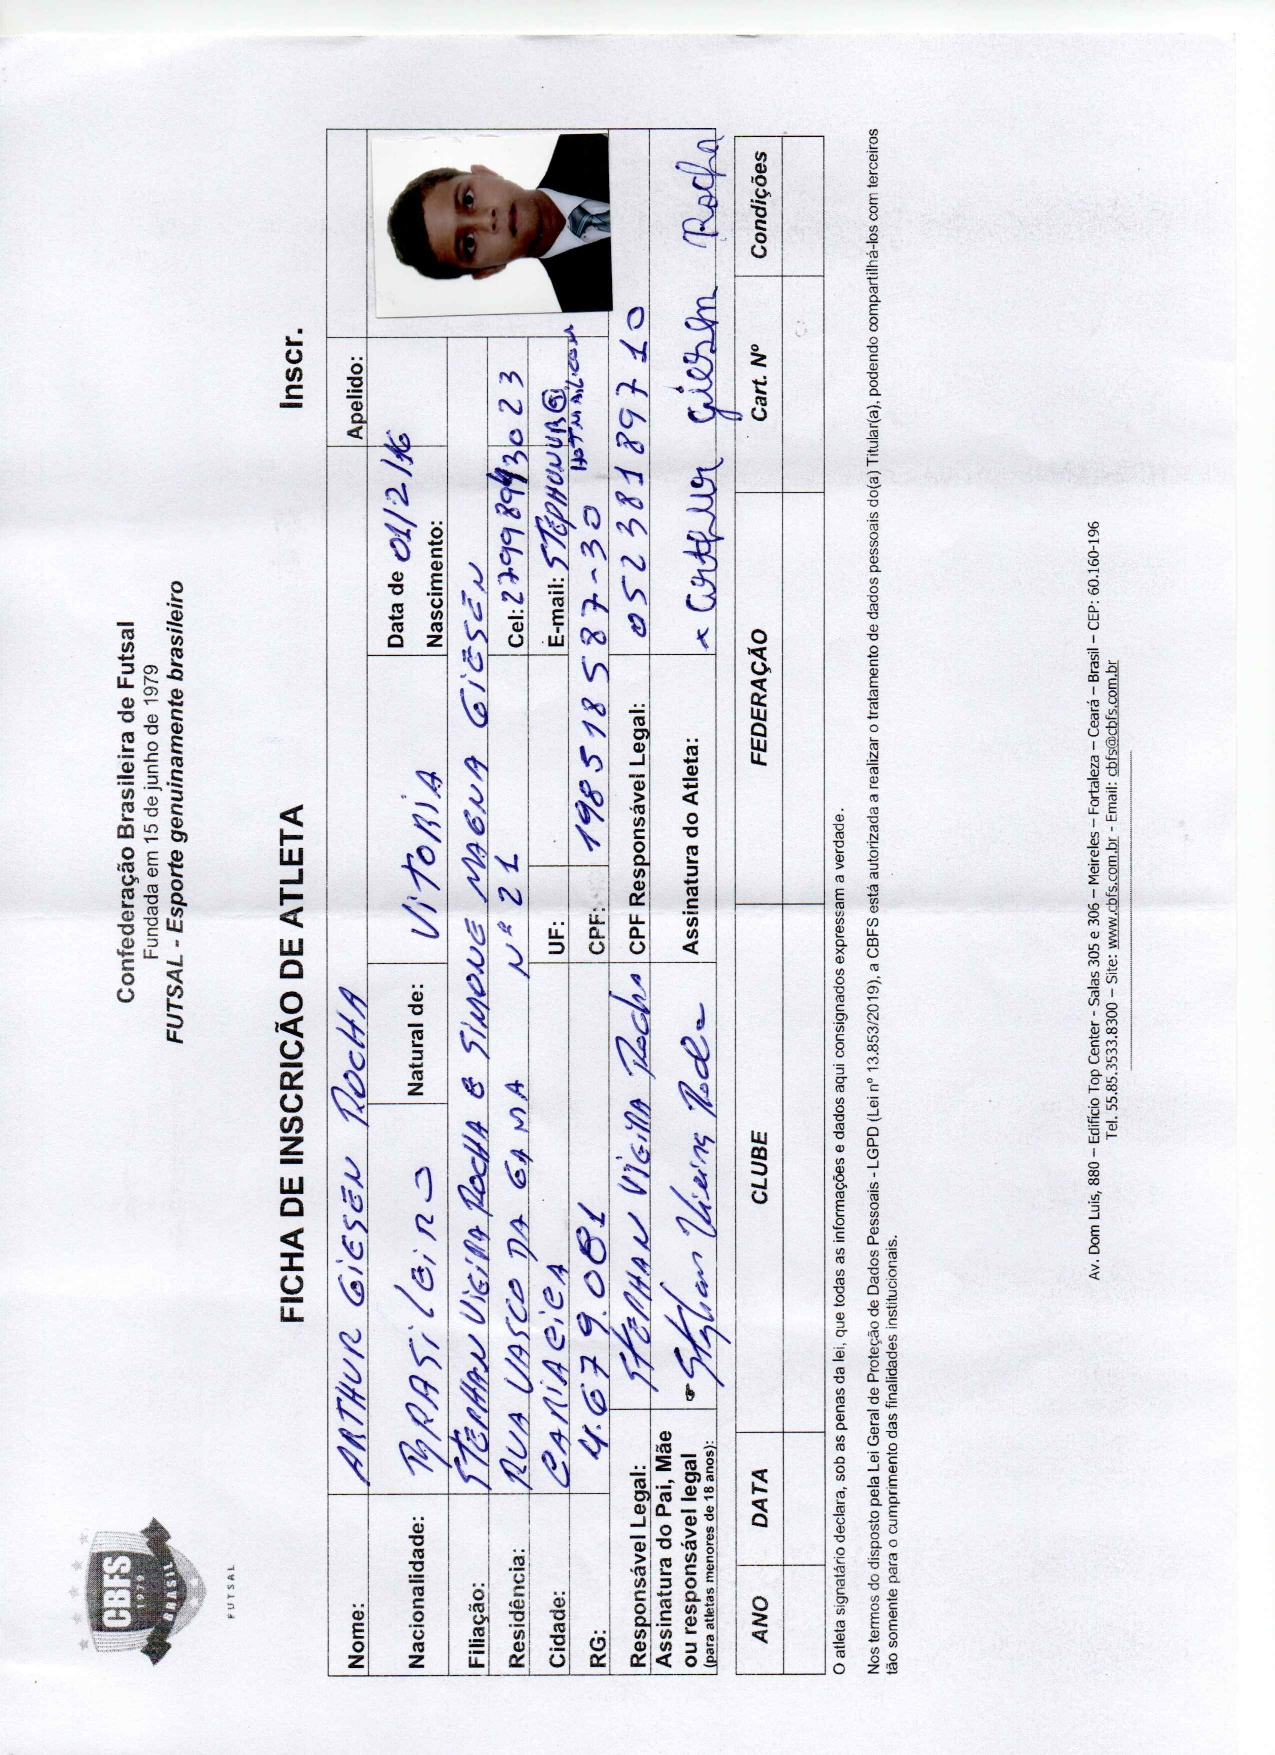 CBFS
1979
BRASIL
FUTSAL
Confederação Brasileira de Futsal
Fundada em 15 de junho de 1979
FUTSAL - Esporte genuinamente brasileiro
FICHA DE INSCRIÇÃO DE ATLETA Inscr.
Nome: ARTHUR GIESEN ROCHA Apelido:
Nacionalidade: BRASILEIRO Natural de: VITORIA Data de Nascimento: 01/2/16
Filiação: STEPHAN VIEIRA ROCHA E SIMONE MAGNA GIESEN
Residência: RUA VASCO DA GAMA Nº 21 Cel: 27998993023
Cidade: CARIACICA UF: E-mail: STEPHUNUR@HOTMAIL.COM
RG: 4.679.081 CPF: 198518587-30
Responsável Legal: STEPHAN VIEIRA Rocha CPF Responsável Legal: 05238189710
Assinatura do Pai, Mãe ou responsável legal (para atletas menores de 18 anos): Stephan Vieira Rocha Assinatura do Atleta: x Arthur Giesen Rocha
ANO DATA CLUBE FEDERAÇÃO Cart. Nº Condições
O atleta signatário declara, sob as penas da lei, que todas as informações e dados aqui consignados expressam a verdade.
Nos termos do disposto pela Lei Geral de Proteção de Dados Pessoais - LGPD (Lei nº 13.853/2019), a CBFS está autorizada a realizar o tratamento de dados pessoais do(a) Titular(a), podendo compartilhá-los com terceiros
tão somente para o cumprimento das finalidades institucionais.
Av. Dom Luis, 880 – Edifício Top Center - Salas 305 e 306 – Meireles – Fortaleza – Ceará – Brasil – CEP: 60.160-196
Tel. 55.85.3533.8300 – Site: www.cbfs.com.br - Email: cbfs@cbfs.com.br